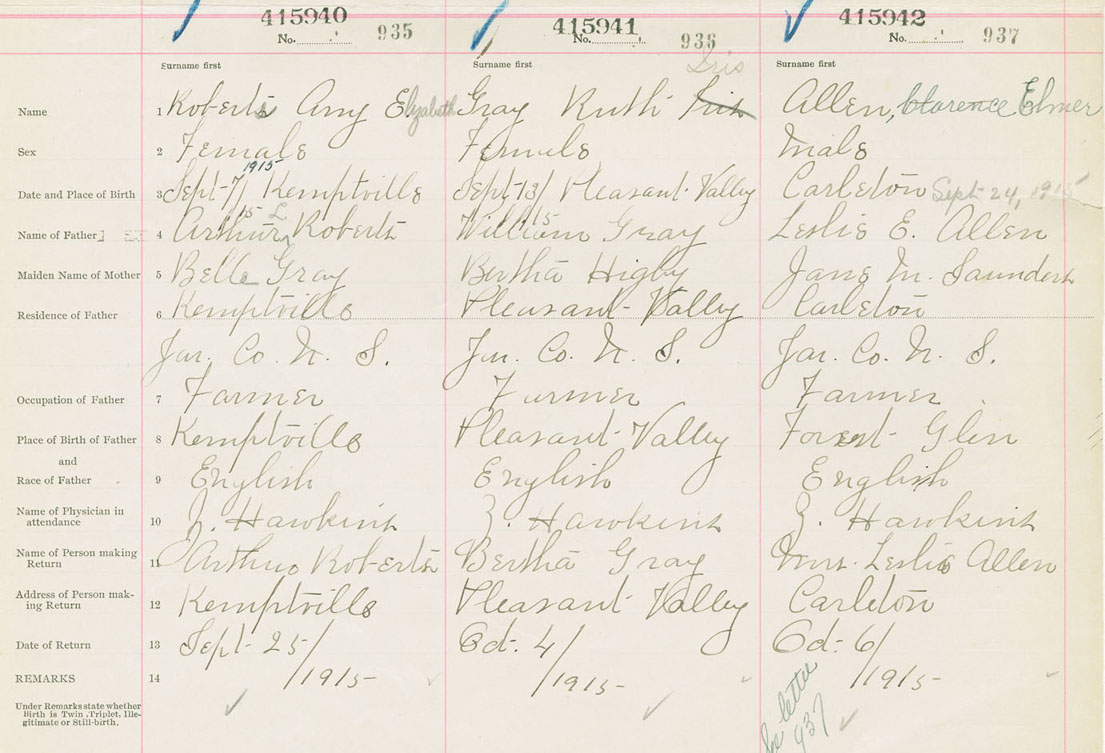 415940 415941 415942
No. 935 No. 936 No. 937
Surname first Surname first Surname first
Iris
Name 1 Roberts Amy Elizabeth Gray Ruth Iris Allen, Clarence Elmer
Sex 2 Female Female Male
1915
Date and Place of Birth 3 Sept-7/15 Kemptville Sept-13/15 Pleasant Valley Carleton Sept 24, 1915
Name of Father 4 Arthur L Roberts William Gray Leslie E. Allen
Maiden Name of Mother 5 Belle Gray Bertha Higby Jane M. Saunders
Residence of Father 6 Kemptville Pleasant Valley Carleton
Yar. Co. N. S. Yar. Co. N. S. Yar. Co. N. S.
Occupation of Father 7 Farmer Farmer Farmer
Place of Birth of Father 8 Kemptville Pleasant Valley Forest Glen
and
Race of Father 9 English English English
Name of Physician in
attendance 10 Z. Hawkins Z. Hawkins Z. Hawkins
Name of Person making
Return 11 Arthur Roberts Bertha Gray Mrs. Leslie Allen
Address of Person mak-
ing Return 12 Kemptville Pleasant Valley Carleton
Date of Return 13 Sept-25/1915 Oct-4/1915 Oct-6/1915
REMARKS 14
Under Remarks state whether
Birth is Twin, Triplet, Ille-
gitimate or Still-birth.
See letter
937